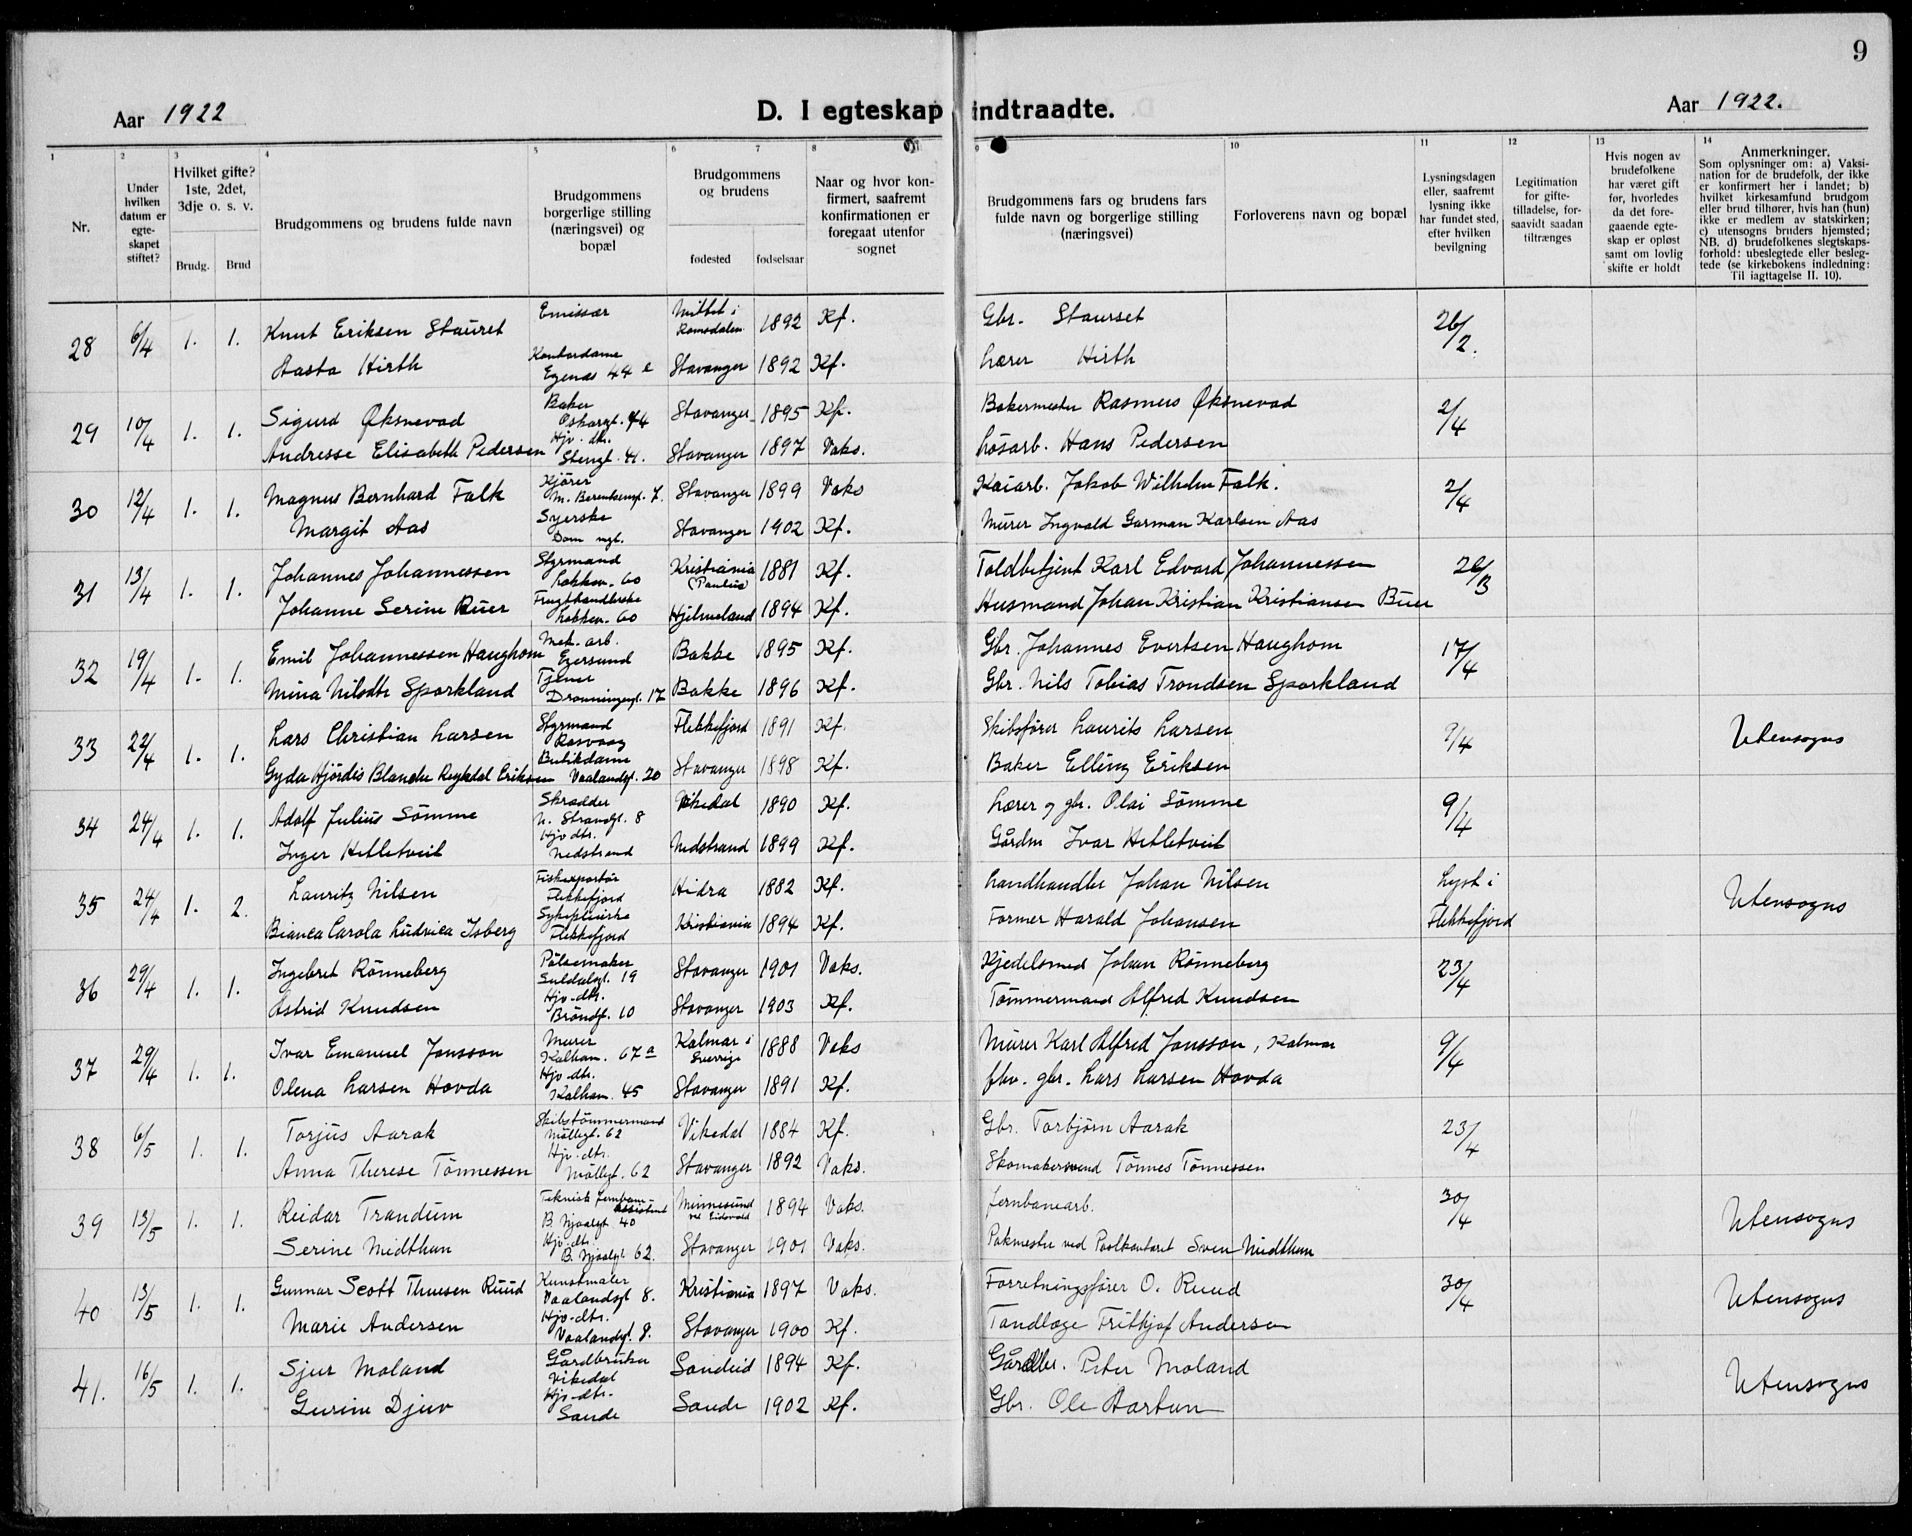 9
Aar 1922
D. I egteskap indtraadte.
Aar 1922.
1 2 3 4 5 6 7 8 9 10 11 12 13 14
Nr.
Under hvilken datum er egte-skapet stiftet?
Hvilket gifte? 1ste, 2det, 3dje o. s. v.
Brudg. Brud
Brudgommens og brudens fulde navn
Brudgommens borgerlige stilling (næringsvei) og bopæl
Brudgommens og brudens
fødested fødselsaar
Naar og hvor kon-firmert, saafremt konfirmationen er foregaat utenfor sognet
Brudgommens fars og brudens fars fulde navn og borgerlige stilling (næringsvei)
Forloverens navn og bopæl
Lysningsdagen eller, saafremt lysning ikke har fundet sted, efter hvilken bevilgning
Legitimation for gifte-tilladelse, for-saavidt saadan tiltrænges
Hvis nogen av brudefolkene har været gift før, hvorledes da det fore-gaaende egte-skap er opløst samt om lovlig skifte er holdt
Anmerkninger.
Som oplysninger om: a) Vaksi-nation for de brudefolk, der ikke er konfirmert her i landet; b) hvilket kirkesamfund brudgom eller brud tilhører, hvis han (hun) ikke er medlem av statskirken; c) utensogns bruders hjemsted; NB. d) brudefolkenes slegtskaps-forhold: ubeslegtede eller besleg-tede (se kirkebokens indledning: Til iagttagelse II. 10).
28 6/4 1. 1. Knut Eriksen Stauret Emissær Mittet i Romsdalen 1892 Kf. Gbr. Staurset 26/2.
Aasta Hirth Kontordame Egenæs 44 e Stavanger 1892 Kf. Lærer Hirth
29 10/4 1. 1. Sigurd Øksnevad Baker Oskarsgt. 44 Stavanger 1895 Kf. Bakermester Rasmus Øksnevad 2/4
Andresse Elisabeth Pedersen Hjv. dtr. Stengt. 41. Stavanger 1897 Vaks. Løsarb. Hans Pedersen
30 12/4 1. 1. Magnus Bernhard Falk Kjører M. Berentsensgt. 7. Stavanger 1899 Vaks Kaiarb. Jakob Wilhelm Falk. 2/4
Margit Aas Syerske Stavanger 1902 Kf. Murer Ingvald Garman Karlsen Aas
31 13/4 1. 1. Johannes Johannessen Styrmand Løkkev. 60 Kristiania (Paulus) 1881 Kf. Toldbetjent Karl Edvard Johannessen 26/3
Johanne Serine Buer Frugthandlerske Løkkev. 60 Hjelmeland 1894 Kf. Husmand Johan Kristian Kristiansen Buer
32 19/4 1. 1. Emil Johannessen Haughom Mek. arb. Egersund Bakke 1895 Kf. Gbr. Johannes Evertsen Haughom 17/4
Mina Nilsdtr Sporkland Tjener Dronningensgt. 17 Bakke 1896 Kf. Gbr. Nils Tobias Trondsen Sporkland
33 22/4 1. 1. Lars Christian Larsen Styrmand Rasvaag Flekkefjord 1891 Kf. Skibsfører Laurits Larsen 9/4 Utensogns
Gyda Hjørdis Blanche Reykdal Eriksen Butikdame Vaalandsgt. 20 Stavanger 1898 Kf. Baker Elling Eriksen
34 24/4 1. 1. Adolf Julius Sømme Skrædder N. Strandgt. 8 Vikedal 1890 Kf. Lærer og gbr. Olai Sømme 9/4
Inger Hetletveit Hjv dtr. Nedstrand Nedstrand 1899 Kf. Gårdm Ivar Hetletveit
35 24/4 1. 2. Lauritz Nilsen Fiskexportør Flekkefjord Hidra 1882 Kf. Landhandler Johan Nilsen Lyst i Flekkefjord Utensogns
Bianca Carola Ludvica Isberg Sykepleierske Flekkefjord Kristiania 1894 Kf. Former Harald Johansen
36 29/4 1. 1. Ingebret Rønneberg Pølsemaker Suldalsgt. 19 Stavanger 1901 Vaks. Kjedelsmed Johan Rønneberg 23/4
Astrid Knudsen Hjv-dtr. Brøndgt. 10 Stavanger 1903 Kf. Tømmermand Alfred Knudsen
37 29/4 1. 1. Ivar Emanuel Jonsson Murer Kalham. 67 a Kalmar i Sverrige 1888 Vaks Murer Karl Alfred Jonsson, Kalmar 9/4
Olena Larsen Hovda Hjv-dtr. Kalham. 45 Stavanger 1891 Kf. fhv. gbr. Lars Larsen Hovda
38 6/5 1. 1. Torjus Aarak Skibstømmermand Møllegt. 62 Vikedal 1884 Kf. Gbr. Torbjørn Aarak 23/4
Anna Therese Tønnessen Hjv-dtr. Møllegt. 62 Stavanger 1892 Vaks. Skomakersvend Tønnes Tønnessen
39 13/5 1. 1. Reidar Trandum Teknisk Jernbane-assistent B. Njaalsgt 40 Minnesund ved Eidsvold 1894 Vaks. Jernbanearb. 30/4 Utensogns
Serine Midthun Hjv-dtr. B. Njaalsgt 62. Stavanger 1901 Vaks. Pakmester ved Postkontoret Sven Midthun
40 13/5 1. 1. Gunnar Scott Thuesen Ruud Kunstmaler Vaalandsgt 8. Kristiania 1897 Vaks. Forretningsfører O. Ruud 30/4 Utensogns
Marie Andersen Hjv-dtr. Vaalandsgt. 8. Stavanger 1900 Kf. Tandlæge Fritkjof Andersen
41. 16/5 1. 1. Sjur Moland Gårdbruker Vikedal Sandeid 1894 Kf. Gårdbr. Peter Moland Utensogns
Gurine Djuv Hjv-dtr. Sande Sande 1902 Kf. Gbr. Ole Aartun